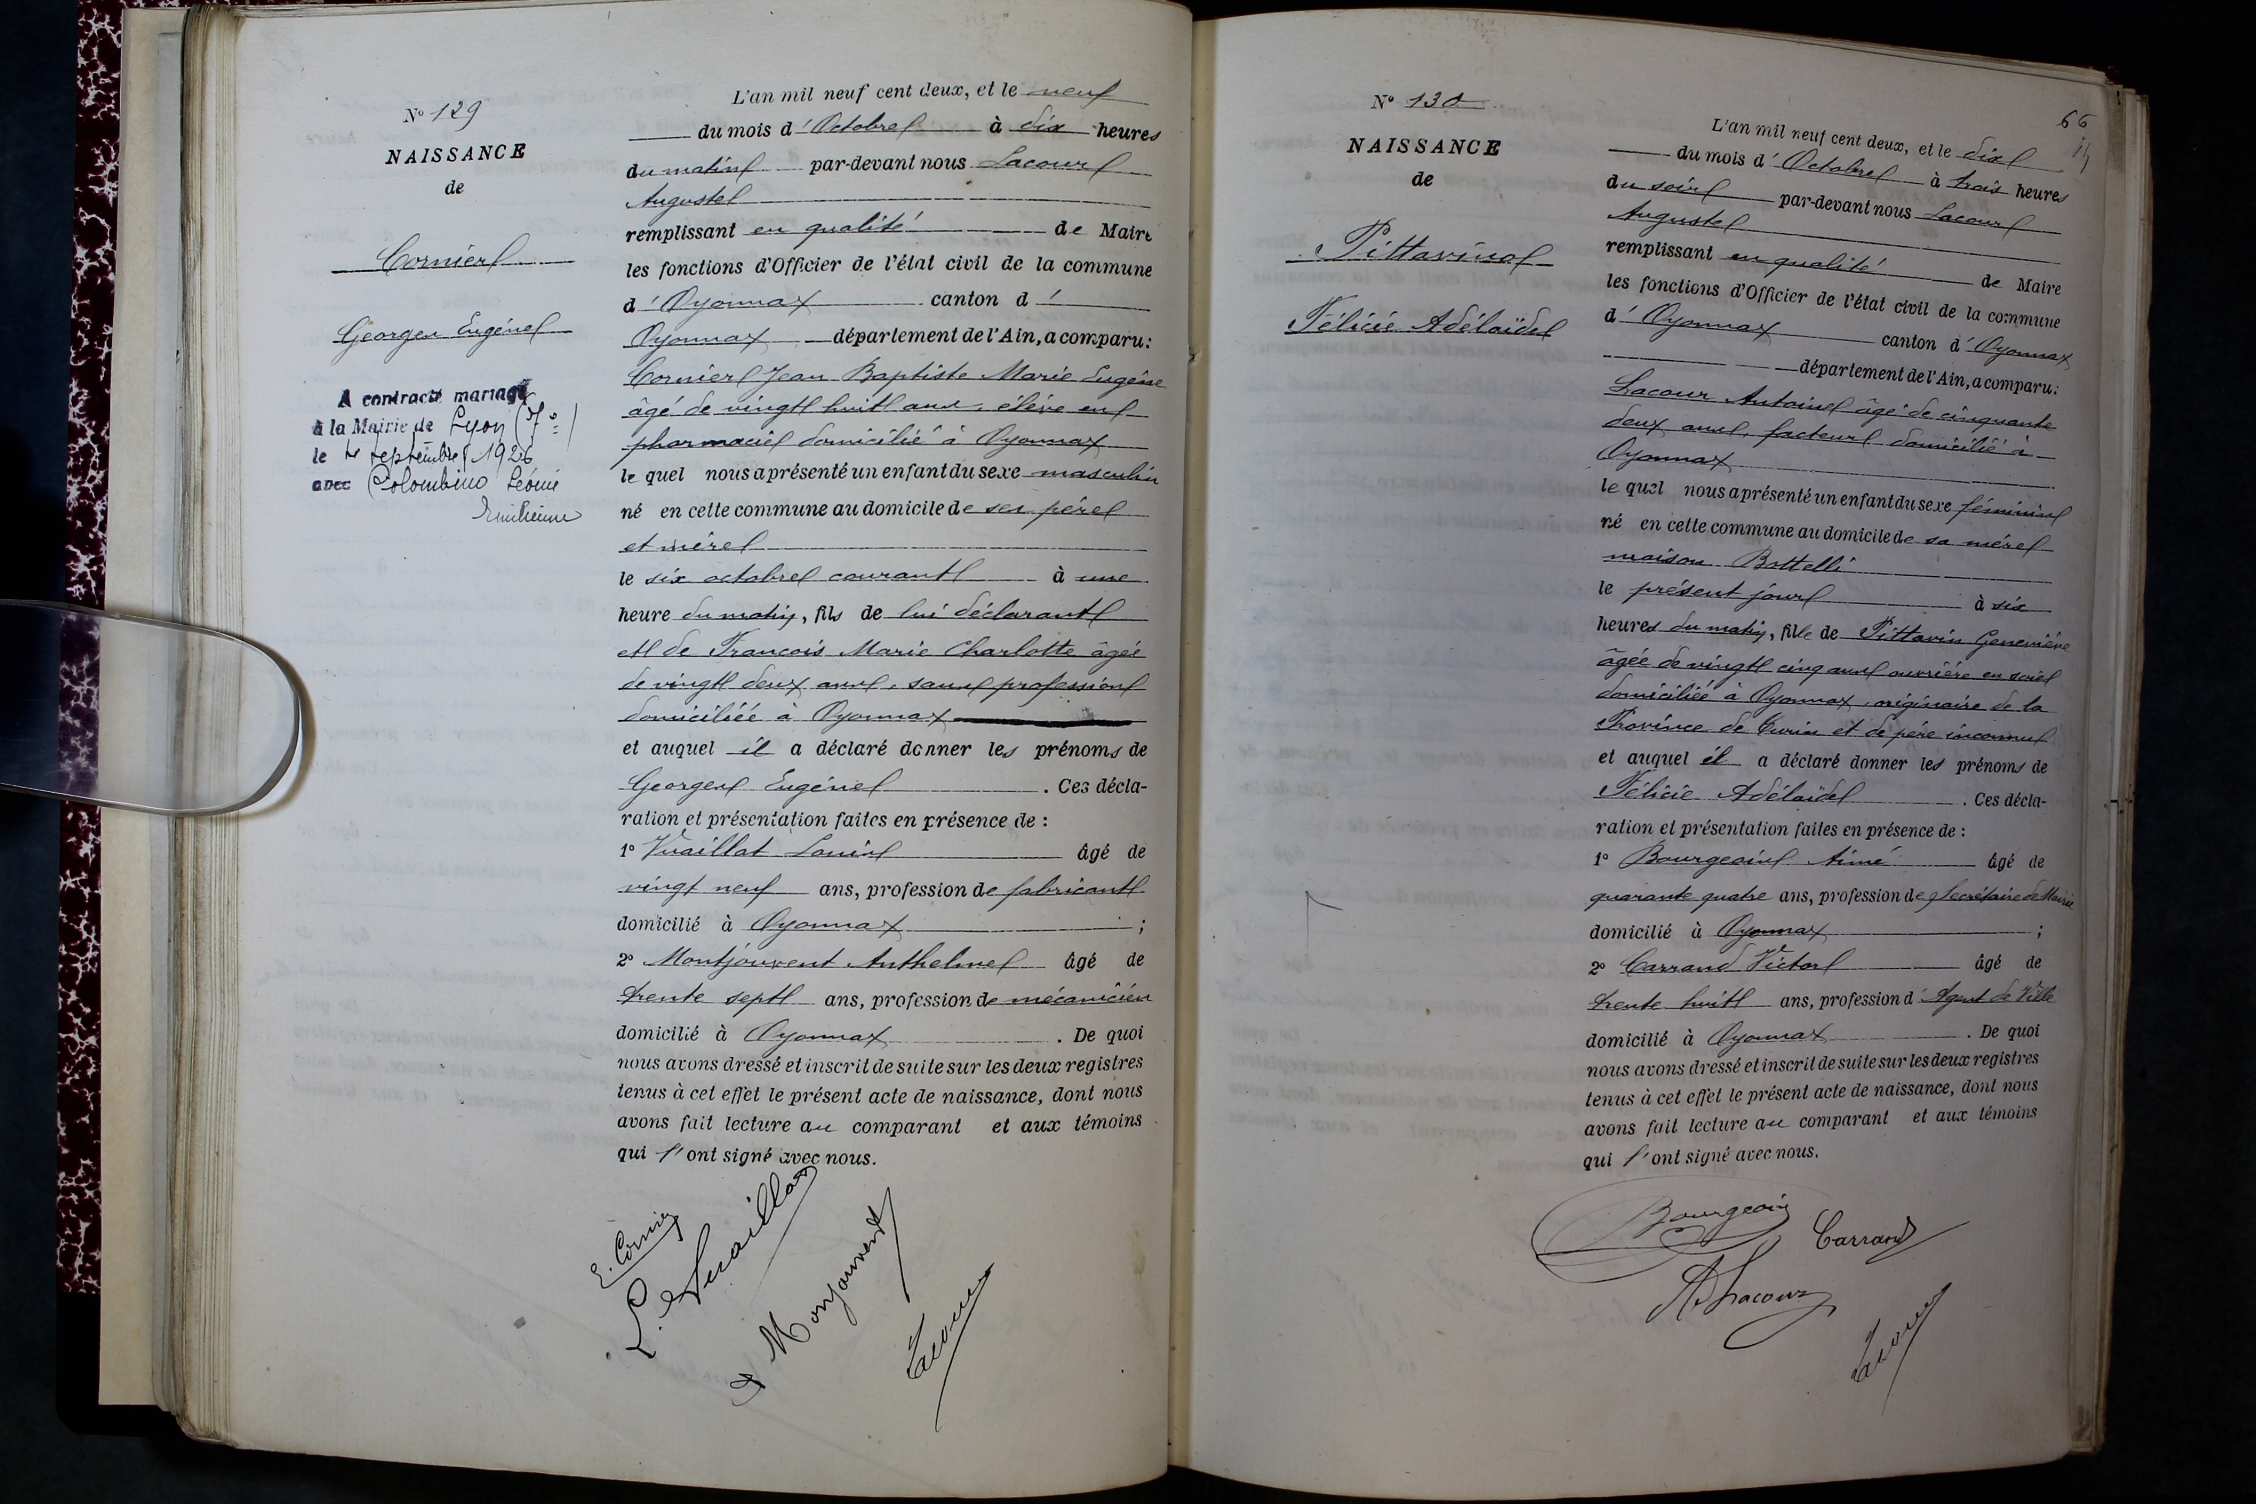 N° 129
NAISSANCE
de
Cornier
Georges Eugène
A contracté mariage
à la Mairie de Lyon (7e)
le septembre 1926
avec Colombino Léonie
L'an mil neuf cent deux, et le neuf
du mois d'Octobre à dix heures
du matin par-devant nous Lacour
Auguste
remplissant en qualité de Maire
les fonctions d'Officier de l'état civil de la commune
d'Oyonnax canton d'
Oyonnax département de l'Ain, a comparu:
Cornier Jean Baptiste Marie Eugène
âgé de vingt huit ans, élève en
pharmacie domicilié à Oyonnax
le quel nous a présenté un enfant du sexe masculin
né en cette commune au domicile de ses père
et mère
le six octobre courant à une
heure du matin, fils de lui déclarant
et de François Marie Charlotte âgée
de vingt deux ans, sans profession
domiciliée à Oyonnax
et auquel il a déclaré donner les prénoms de
Georges Eugène. Ces décla-
ration et présentation faites en présence de :
1° Vuaillat Louis âgé de
vingt neuf ans, profession de fabricant
domicilié à Oyonnax ;
2° Montjouvent Anthelme âgé de
trente sept ans, profession de mécanicien
domicilié à Oyonnax. De quoi
nous avons dressé et inscrit de suite sur les deux registres
tenus à cet effet le présent acte de naissance, dont nous
avons fait lecture au comparant et aux témoins
qui l'ont signé avec nous.
E. Cornier
L. Vuaillat
Monjouvent
Lacour
66
N° 130
NAISSANCE
de
Pittavino
Félicie Adélaïde
L'an mil neuf cent deux, et le dix
du mois d'Octobre à trois heures
du soir par-devant nous Lacour
Auguste
remplissant en qualité de Maire
les fonctions d'Officier de l'état civil de la commune
d'Oyonnax canton d'Oyonnax
département de l'Ain, a comparu:
Lacour Antoine âgé de cinquante
deux ans, facteur domicilié à
Oyonnax
le quel nous a présenté un enfant du sexe féminin
né en cette commune au domicile de sa mère
maison Bottelli
le présent jour à six
heures du matin, fille de Pittavin Geneviève
âgée de vingt cinq ans ouvrière en soie
domiciliée à Oyonnax, originaire de la
Province de Turin et de père inconnu
et auquel il a déclaré donner les prénoms de
Félicie Adélaïde. Ces décla-
ration et présentation faites en présence de :
1° Bourgeois Aimé âgé de
quarante quatre ans, profession de Secrétaire de Mairie
domicilié à Oyonnax ;
2° Carrand Victor âgé de
trente huit ans, profession d'Agent de Ville
domicilié à Oyonnax. De quoi
nous avons dressé et inscrit de suite sur les deux registres
tenus à cet effet le présent acte de naissance, dont nous
avons fait lecture au comparant et aux témoins
qui l'ont signé avec nous.
Bourgeois
Carrand
A Lacour
Lacour